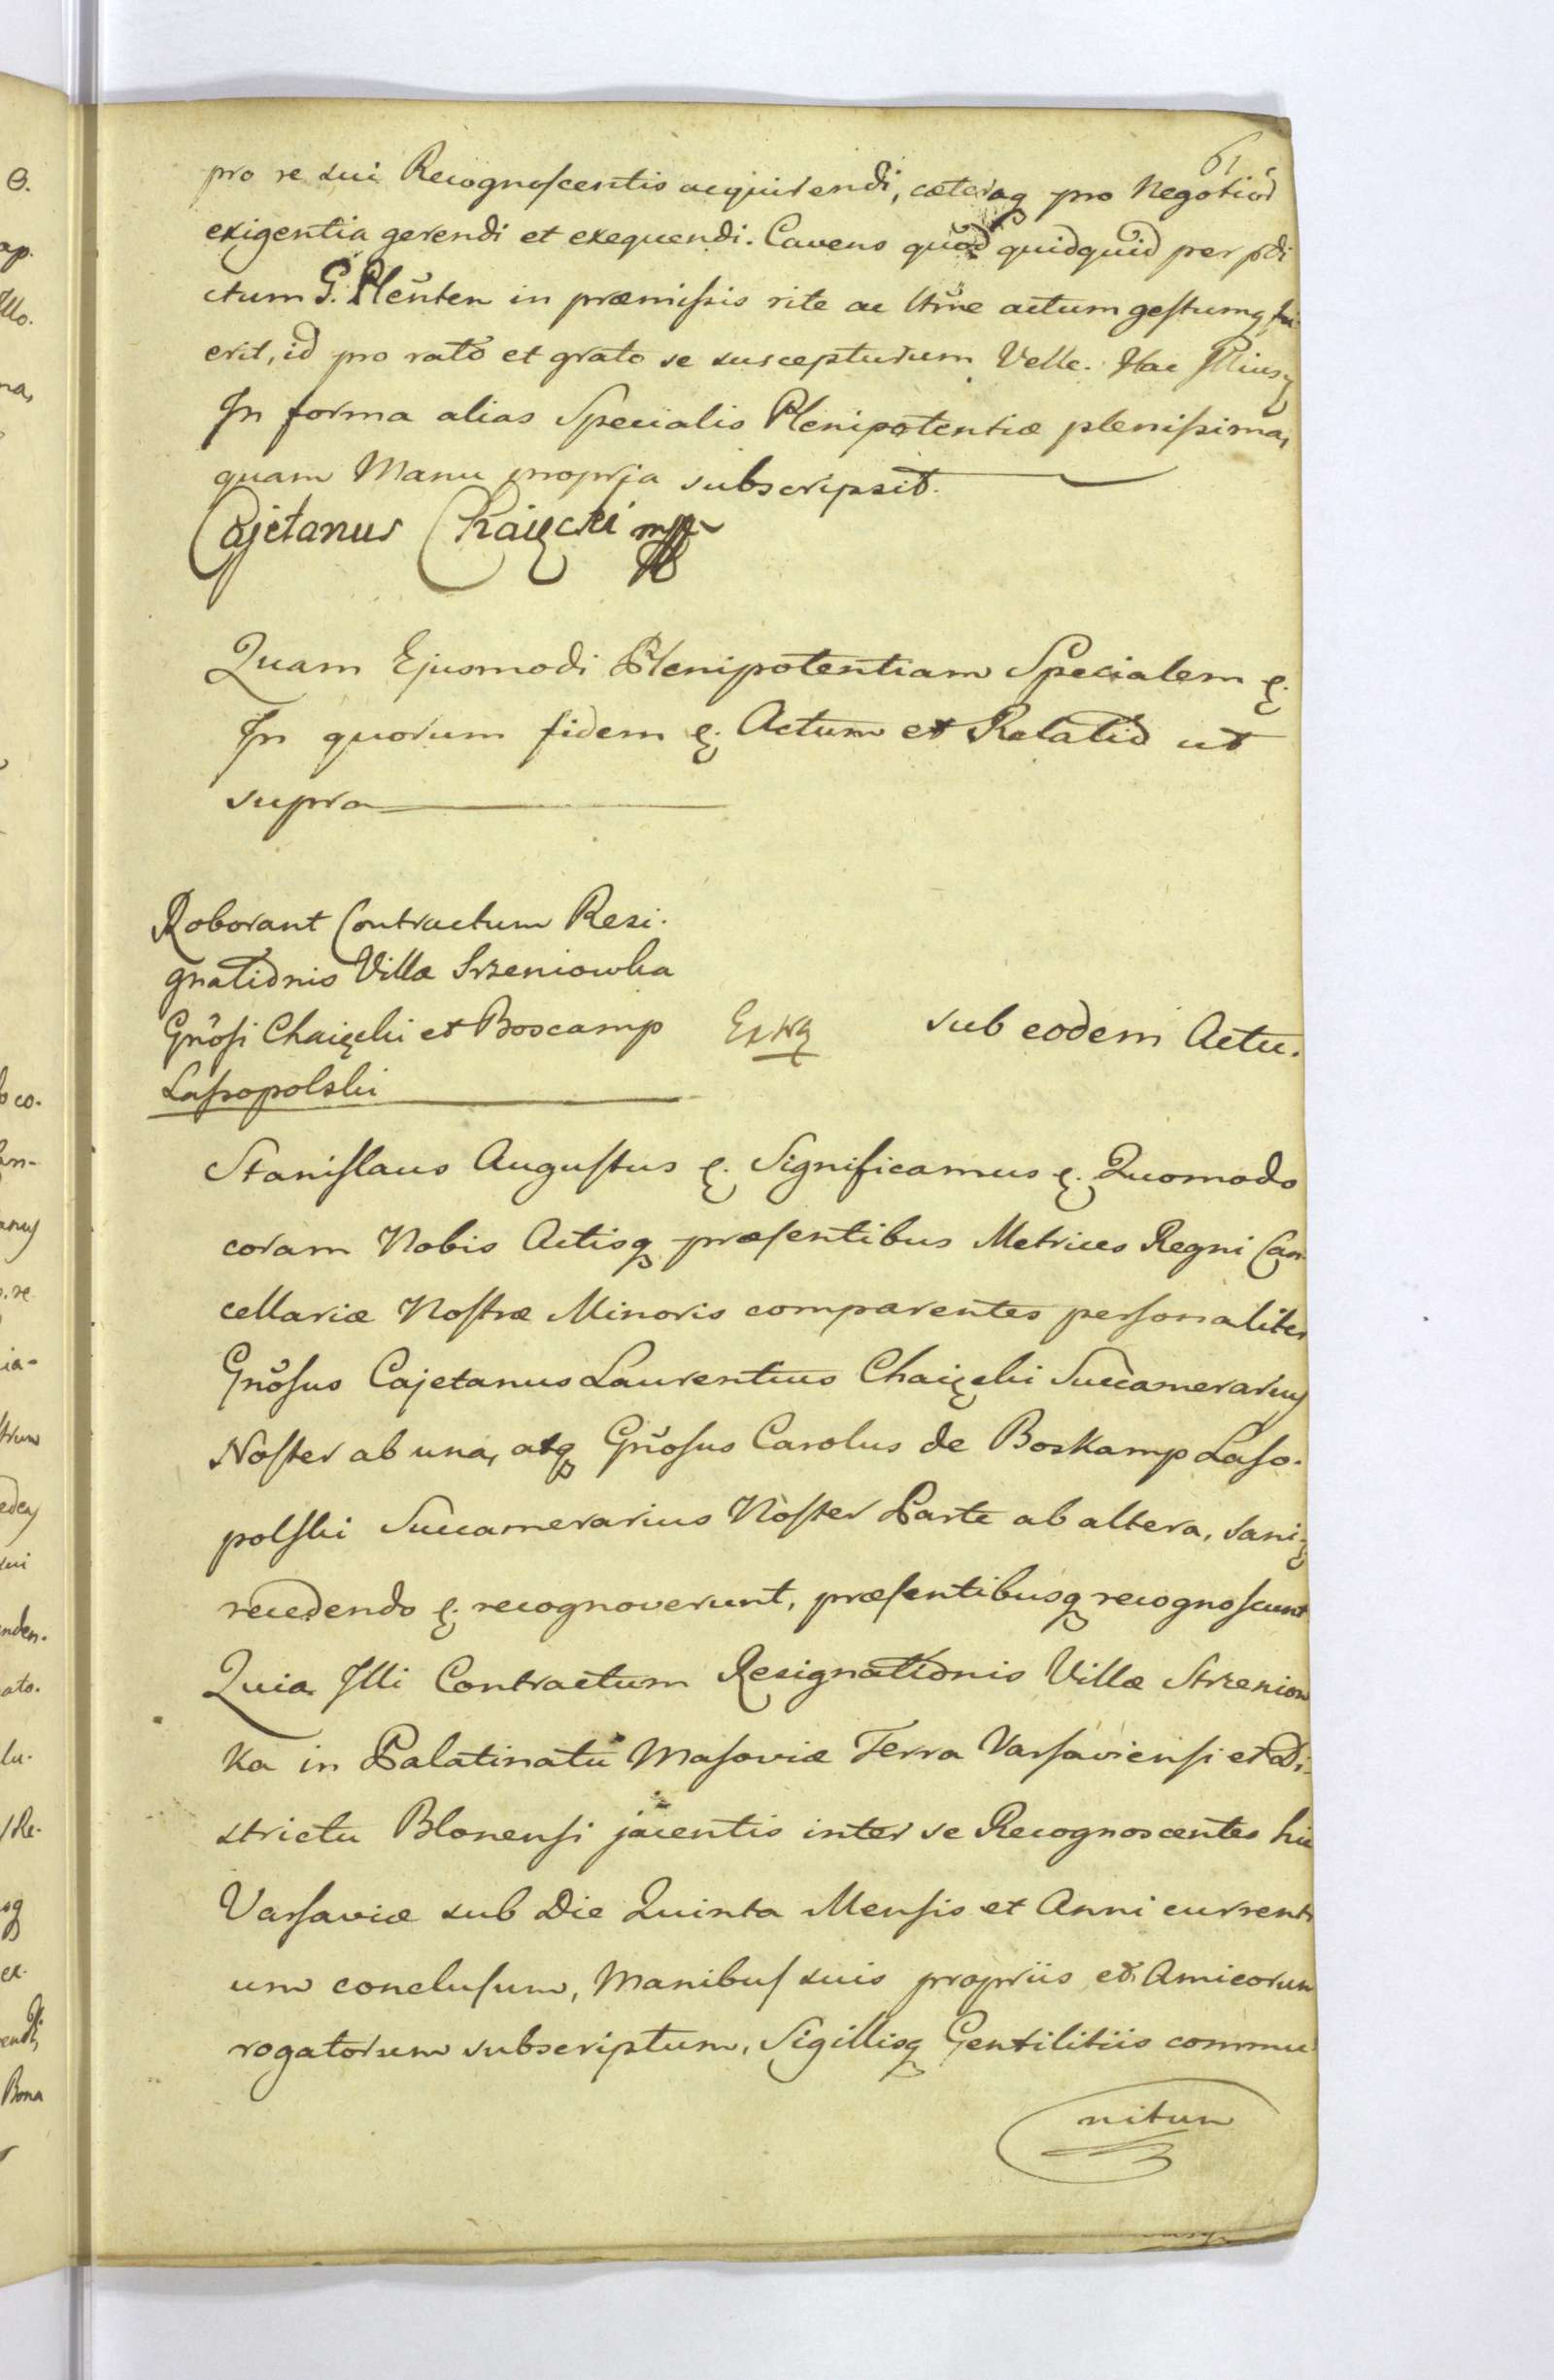 61
pro re sui Recognoscentis acquirendi, cæteraq pro Negotiod
exigentia gerendi et exequendi. Cavens quod quidquid per pdi
ctum G. Plenten in præmissis rite ac ltme actum gestumq fu
erit, id pro rato et grato se suscepturum Velle. Hac
In forma alias Specialis Plenipotentiæ plenissima,
quam Manu propria subscripsit.
Cajetanus Chaięcki mpp
Quam Ejusmodi Plenipotentiam Specialem &.
In quorum fidem &. Actum et Relatio ut
supra
Roborant Contractum Resi.
gnationis Villæ Srzeniowka
Gnosi Chaięcki et Boscamp
sub eodem Actu.
Lassopolski
Stanislaus Augustus &. Significamus &. Quomodo
coram Nobis Actisq præsentibus Metrices Regni Can
cellariæ Nostræ Minoris comparentes personaliter
Gnosus Cajetanus Laurentius Chaięcki Succamerarius
Noster ab una, atq Gnosus Carolus de Boskamp Laso.
polski Succamerarius Noster Parte ab altera, sani
recedendo &. recognoverunt, præsentibusq recognoscunt
Quia Illi Contractum Resignationis Villæ Strzeniow
ka in Palatinatu Masoviæ Terra Varsaviensi et Di
strictu Blonensi jacentis inter se Recognoscentes hic
Varsaviæ sub Die Quinta Mensis et Anni current
um conclusum, Manibus suis propriis et Amicorum
rogatorum subscriptum, Sigillisq Gentilitiis commu
nitum